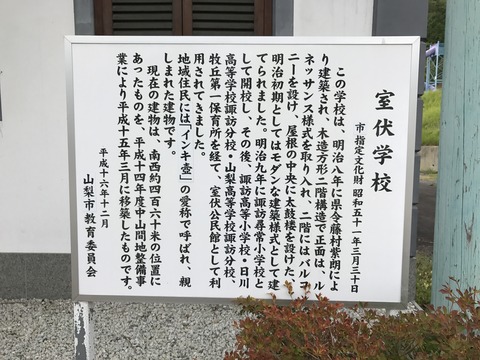 室伏学校
市指定文化財 昭和五十一年三月三十日
この学校は、明治八年に県令藤村紫朗によ
り建築され、木造方形二階構造で正面は、ル
ネッサンス様式を取り入れ、二階には、バルコ
ニーを設け、屋根の中央に太鼓楼を設けた、
明治初期としてはモダンな建築様式として建
てられました。明治九年に諏訪尋常小学校と
して開校し、その後、諏訪高等小学校・日川
高等学校諏訪分校・山梨高等学校諏訪分校、
牧丘第一保育所を経て、室伏公民館として利
用されてきました。
地域住民には「インキ壺」の愛称で呼ばれ、親
しまれた建物です。
現在の建物は、南西約四百六十米の位置に
あったものを、平成十四年度中山間地整備事
業により平成十五年三月に移築したものです。
平成十六年十二月
山梨市教育委員会